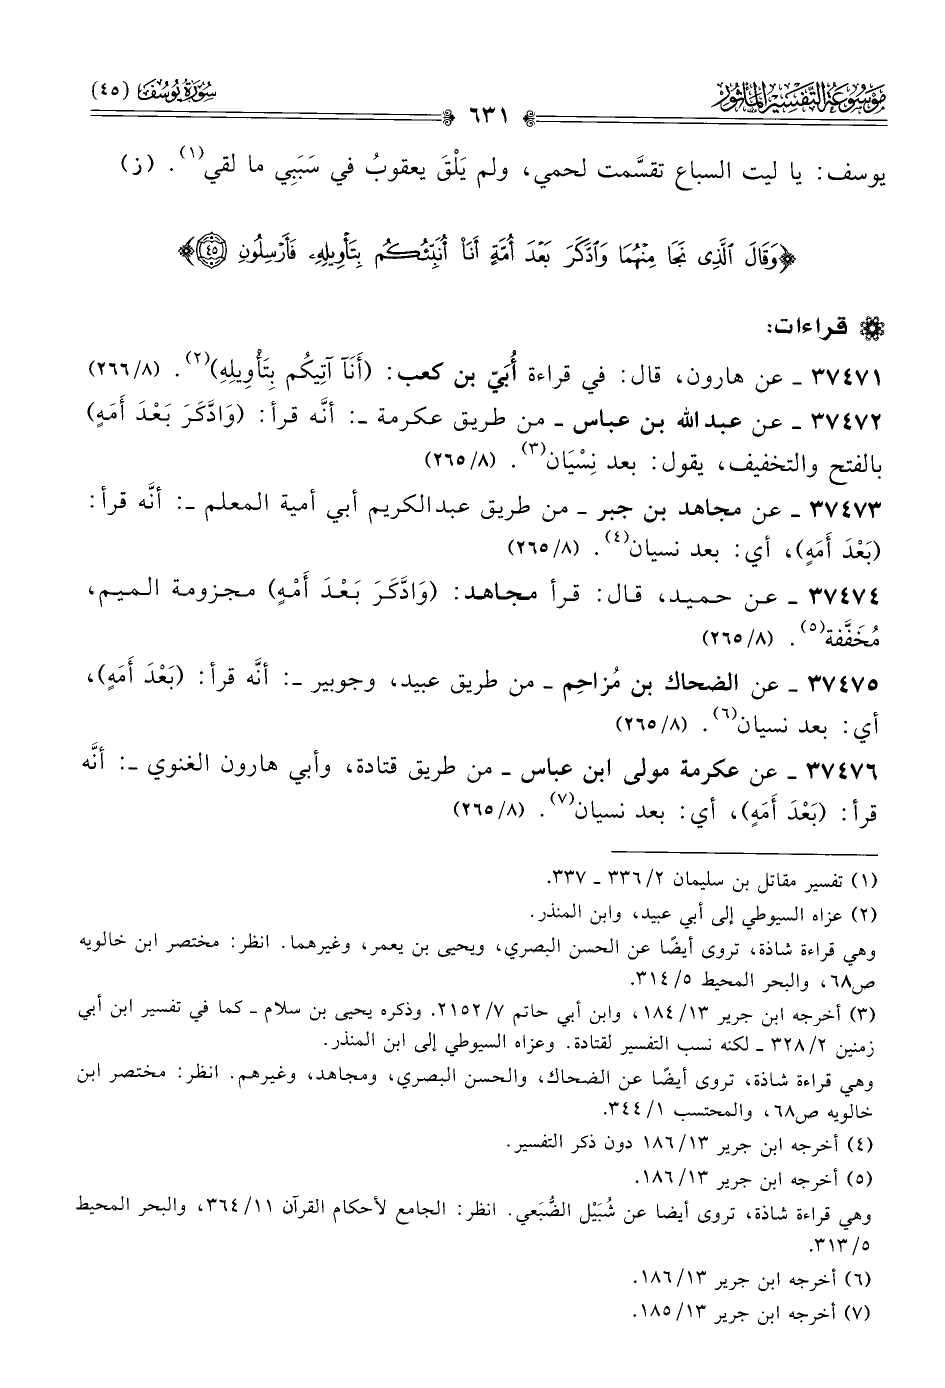 موسوعة التفسير المأثور
٦٣١
سورة يوسف (٤٥)
يوسف: يا ليت السباع تقسَّمت لحمي، ولم يَلْقَ يعقوبُ في سَبَبِي ما لقي(١). (ز)
﴿وَقَالَ ٱلَّذِى نَجَا مِنْهُمَا وَٱدَّكَرَ بَعْدَ أُمَّةٍ أَنَا۠ أُنَبِّئُكُم بِتَأْوِيلِهِۦ فَأَرْسِلُونِ ٤٥﴾
قراءات:
٣٧٤٧١ ـ عن هارون، قال: في قراءة أُبَيّ بن كعب: (أَنَآ آتِيكُم بِتَأْوِيلِهِ)(٢). (٢٦٦/٨)
٣٧٤٧٢ ـ عن عبد الله بن عباس ـ من طريق عكرمة ـ: أنَّه قرأ: (وَادَّكَرَ بَعْدَ أَمَهٍ)
بالفتح والتخفيف، يقول: بعد نِسْيَان(٣). (٢٦٥/٨)
٣٧٤٧٣ ـ عن مجاهد بن جبر ـ من طريق عبدالكريم أبي أمية المعلم ـ: أنَّه قرأ:
(بَعْدَ أَمَهٍ)، أي: بعد نسيان(٤). (٢٦٥/٨)
٣٧٤٧٤ ـ عن حميد، قال: قرأ مجاهد: (وَادَّكَرَ بَعْدَ أَمْهٍ) مجزومة الميم،
مُخَفَّفة(٥). (٢٦٥/٨)
٣٧٤٧٥ ـ عن الضحاك بن مُزاحِم ـ من طريق عبيد، وجويبر ـ: أنَّه قرأ: (بَعْدَ أَمَهٍ)،
أي: بعد نسيان(٦). (٢٦٥/٨)
٣٧٤٧٦ ـ عن عكرمة مولى ابن عباس ـ من طريق قتادة، وأبي هارون الغنوي ـ: أنَّه
قرأ: (بَعْدَ أَمَهٍ)، أي: بعد نسيان(٧). (٢٦٥/٨)
(١) تفسير مقاتل بن سليمان ٣٣٦/٢ ـ ٣٣٧.
(٢) عزاه السيوطي إلى أبي عبيد، وابن المنذر.
وهي قراءة شاذة، تروى أيضًا عن الحسن البصري، ويحيى بن يعمر، وغيرهما. انظر: مختصر ابن خالويه
ص٦٨، والبحر المحيط ٣١٤/٥.
(٣) أخرجه ابن جرير ١٨٤/١٣، وابن أبي حاتم ٢١٥٢/٧. وذكره يحيى بن سلام ـ كما في تفسير ابن أبي
زمنين ٣٢٨/٢ ـ لكنه نسب التفسير لقتادة. وعزاه السيوطي إلى ابن المنذر.
وهي قراءة شاذة، تروى أيضًا عن الضحاك، والحسن البصري، ومجاهد، وغيرهم. انظر: مختصر ابن
خالويه ص٦٨، والمحتسب ٣٤٤/١.
(٤) أخرجه ابن جرير ١٨٦/١٣ دون ذكر التفسير.
(٥) أخرجه ابن جرير ١٨٦/١٣.
وهي قراءة شاذة، تروى أيضا عن شُبَيْل الضُّبَعي. انظر: الجامع لأحكام القرآن ٣٦٤/١١، والبحر المحيط
٣١٣/٥.
(٦) أخرجه ابن جرير ١٨٦/١٣.
(٧) أخرجه ابن جرير ١٨٥/١٣.